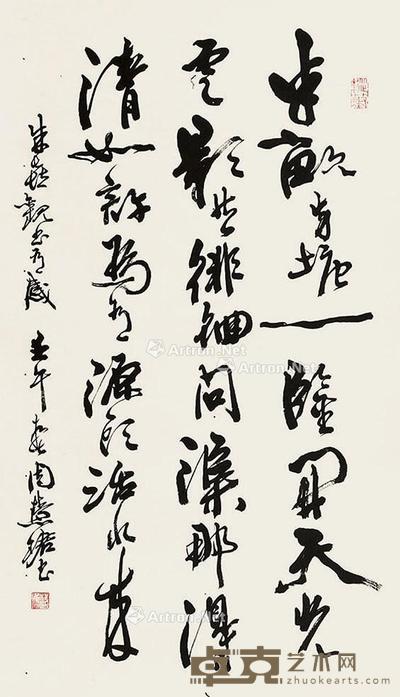 半畝方塘一鑒開天光
雲影共徘徊問渠那得
清如許為有源頭活水來
朱熹觀書有感 壬午春周慧珺書
Artron.Net
Artron.Net
Artron.Net
Artron.Net
卓克艺术网
zhuokearts.com